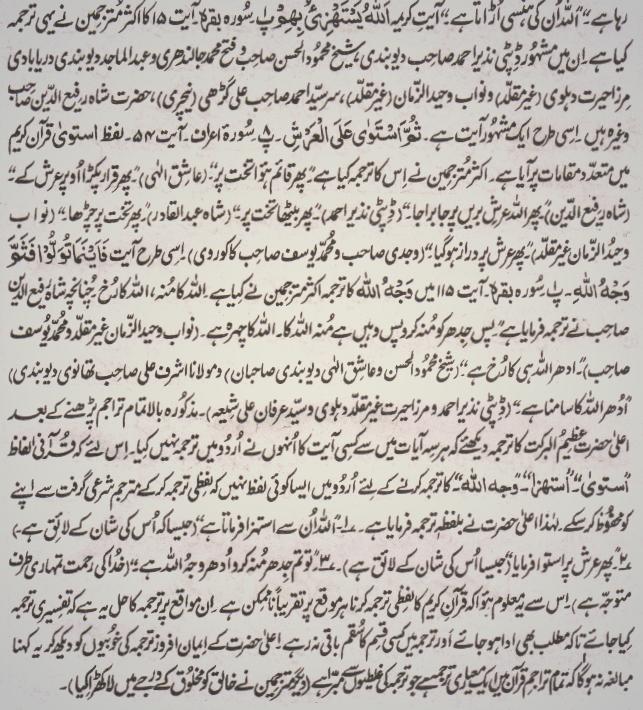 رہا ہے"۔ "اللہ اُن کی ہنسی اُڑاتا ہے"۔ آیتِ کریمہ اَللہُ یَسْتَھْزِئُ بِھِمْ پ۱ سورہ بقرۃ آیت ۱۵ کا اکثر مُترجمین نے یہی ترجمہ
کیا ہے۔ اِن میں مشہور ڈپٹی نذیر احمد صاحب دیوبندی، شیخ محمود الحسن صاحب و فتح محمد جالندھری و عبد الماجد دیوبندی دریابادی
مرزا حیرت دہلوی (غیر مقلد) و نواب وحید الزّمان (غیر مقلّد)، سرسیّد احمد صاحب علی گڑھی (نیچری)، حضرت شاہ رفیع الدّین صاحب
وغیرہ ہیں۔ اِسی طرح ایک مشہور آیت ہے۔ ثُمَّ اسْتَوٰی عَلَی الْعَرْشِ۔ پ۸ سورۂ اعراف۔ آیت ۵۴۔ لفظ استویٰ قرآنِ کریم
میں متعدّد مقامات پر آیا ہے۔ اکثر مُترجمین نے اِس کا ترجمہ کیا ہے "پھر قائم ہوا تخت پر" (عاشق الٰہی)۔ "پھر قرار پکڑا اُوپر عرش کے"
(شاہ رفیع الدّین)۔ "پھر اللہ عرشِ بریں پر جا براجا"۔ (ڈپٹی نذیر احمد)۔ "پھر بیٹھا تخت پر"۔ (شاہ عبدالقادر)۔ "پھر تخت پر چڑھا"۔ (نواب
وحید الزّمان غیر مقلد)۔ "پھر عرش پر دراز ہوگیا"۔ (وجدی صاحب و محمّد یوسف صاحب کاکوروی) اِسی طرح آیت فَاَیْنَمَا تُوَلُّوْا فَثَمَّ
وَجْہُ اللہِ۔ پ۱ سُورہ بقرۃ۔ آیت ۱۱۵ میں وَجْہُ اللہ کا ترجمہ اکثر مترجمین نے کیا ہے۔ اللہ کا مُنہ، اللہ کا رُخ۔ چنانچہ شاہ رفیع الدّین
صاحب نے ترجمہ فرمایا ہے "پس جدھر کو مُنہ کرو پس وہیں ہے مُنہ اللہ کا۔ اللہ کا چہرہ ہے۔ (نواب وحید الزّمان غیر مقلّد و محمّد یُوسف
صاحب)۔ "ادھر اللہ ہی کا رُخ ہے" (شیخ محمود الحسن و عاشق الٰہی دیوبندی صاحبان) و مولانا اشرف علی صاحب تھانوی دیوبندی)
"اُدھر اللہ کا سامنا ہے"۔ (ڈپٹی نذیر احمد و مرزا حیرت غیر مقلّد دہلوی و سیّد عرفان علی شیعہ)۔ مذکورہ بالا تمام تراجم پڑھنے کے بعد
اعلیٰ حضرت عظیمُ البرکت کا ترجمہ دیکھئے کہ ہر سہ آیات میں سے کسی آیت کا اُنہوں نے اُردو میں ترجمہ نہیں کیا۔ اِس لئے کہ قرآنی الفاظ
"استویٰ" "اِستہزا" "وجہ اللہ" کا ترجمہ کرنے کے لیے اُردو میں ایسا کوئی لفظ نہیں کہ لفظی ترجمہ کرکے مترجم شرعی گرفت سے اپنے
کو محفوظ کر سکے۔ لہٰذا اعلیٰ حضرت نے بلفظہٖ ترجمہ فرمایا ہے۔ ۱۔ "اللہ اُن سے استہزا فرماتا ہے" (جیسا کہ اُس کی شان کے لائق ہے۔)
۲۔ "پھر عرش پر استوا فرمایا" (جیسا اُس کی شان کے لائق ہے)۔ ۳۔ "تو تم جدھر مُنہ کرو اُدھر وجہُ اللہ ہے"، (خُدا کی رحمت تمہاری طرف
متوجّہ ہے) اِس سے یہ معلوم ہوا کہ قرآنِ کریم کا لفظی ترجمہ کرنا ہر موقع پر تقریباً ناممکن ہے۔ اِن مواقع پر ترجمہ کا حل یہ ہے کہ تفسیری ترجمہ
کیا جائے تاکہ مطلب بھی ادا ہو جائے اور ترجمہ میں کسی قسم کا سُقم باقی نہ رہے۔ اعلیٰ حضرت کے ایمان افروز ترجمہ کی خوبیوں کو دیکھ کر یہ کہنا
مبالغہ نہ ہوگا کہ تمام تراجمِ قرآن میں ایک معیاری ترجمہ ہے جو ترجمہ کی غلطیوں سے مبرّا ہے (دیگر مترجمین نے خالق کو مخلوق کے درجے میں لا کھڑا کیا)۔